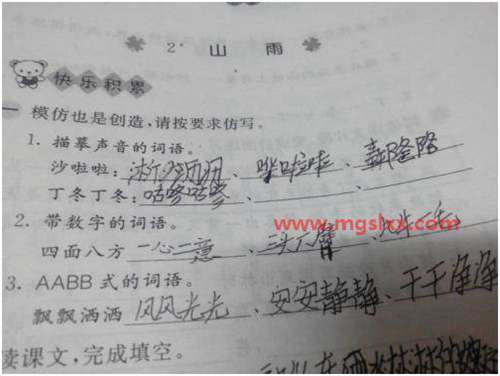 2 山 雨
快乐积累
一 模仿也是创造,请按要求仿写。
1. 描摹声音的词语。
沙啦啦: 、哗啦啦、轰隆隆
丁冬丁冬:咕咚咕咚、
2. 带数字的词语。
四面八方 一心二意、三头六臂、一毛
www.mgslxx.com
3. AABB 式的词语。
飘飘洒洒 风风光光、安安静静、干干净净
读课文,完成填空。